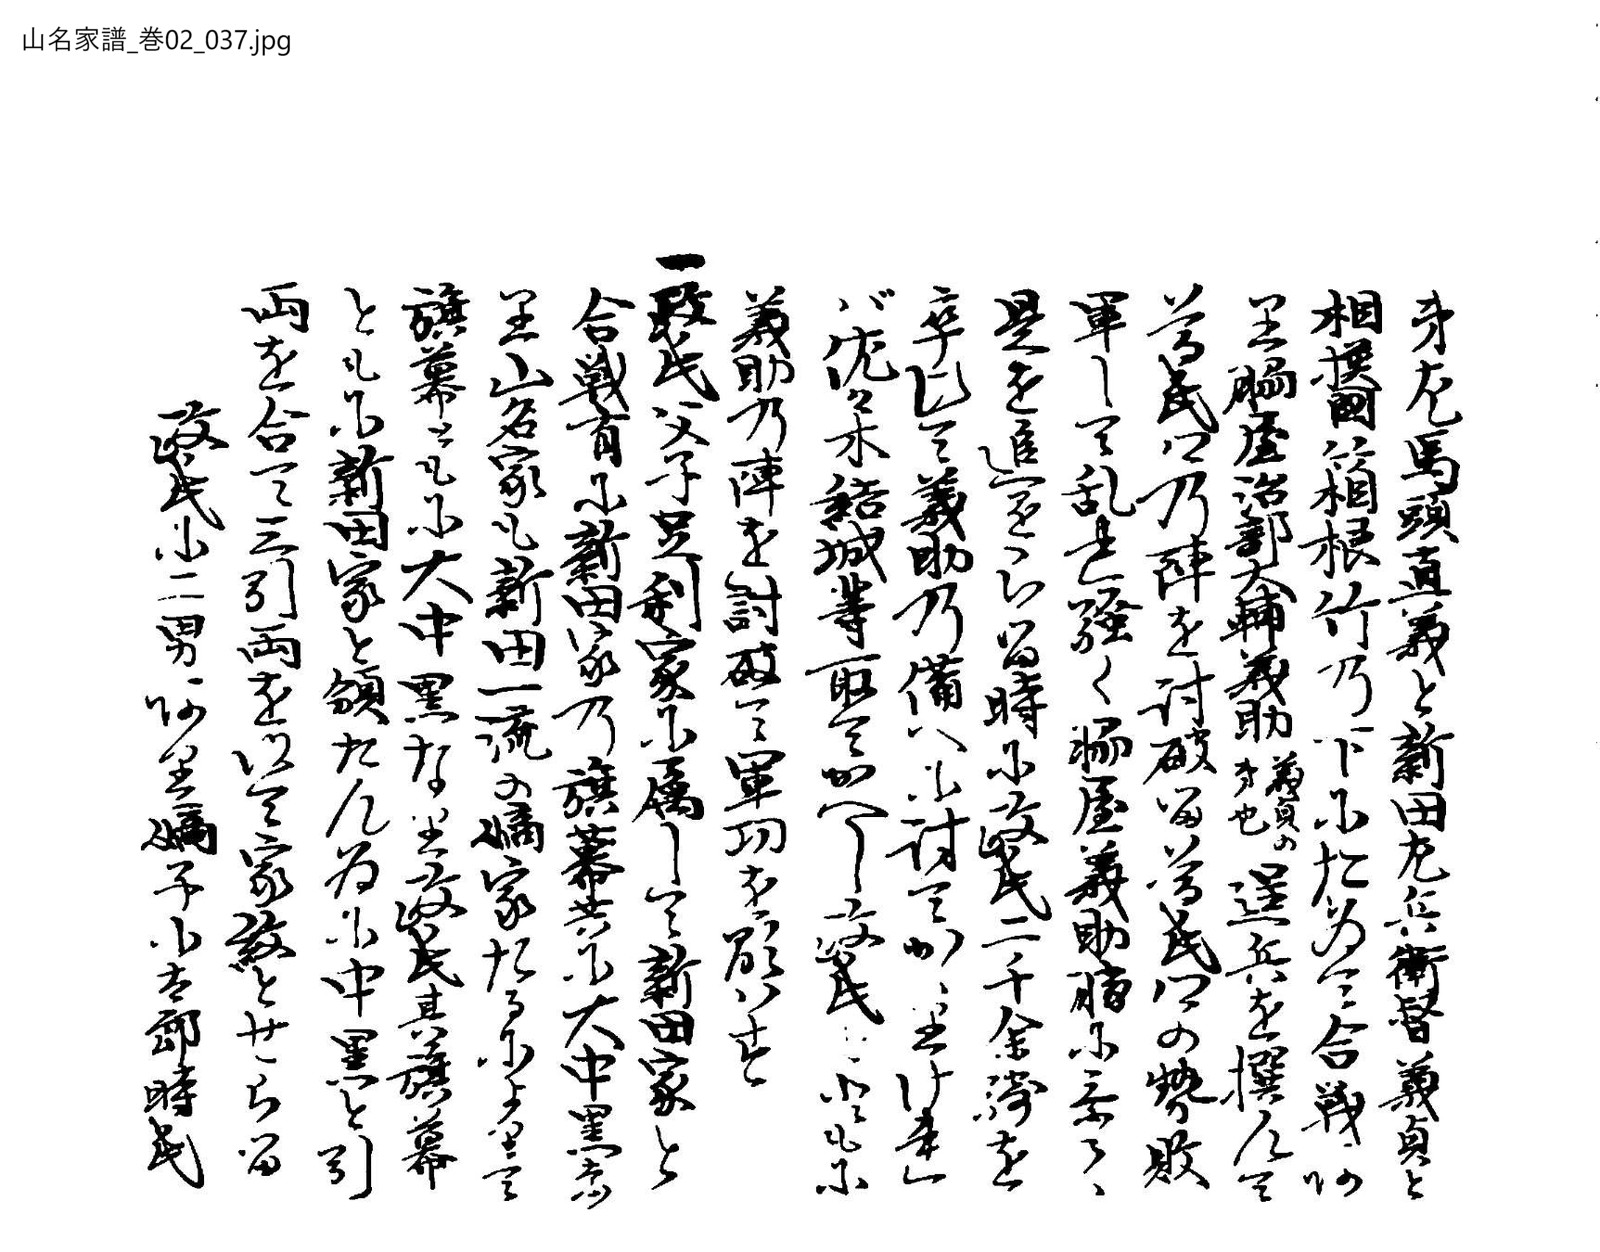 山名家譜_巻02_037.jpg
弟左馬頭直義と新田左兵衛督義貞と
相摸国箱根竹乃下にたゐて合戦あ
里脇屋治部大輔義助義貞の弟也逞兵を撰んて
尊氏公乃陣を討破留尊氏公の勢敗
軍して乱连騒く脇屋義助勝に乗り
是を追ふ留時に政氏二千余騎を
率して義助乃備へ尓討てかゝ里け連
バ佐々木結城等取てかへし政氏とゝもに
義助乃陣を討破て軍功を顕ハす
一政氏父子足利家に属して新田家と
合戦有に新田家乃旗幕共尓大中黒
里山名家も新田一流の嫡家たるによ里て
旗幕ともに大中黒な里政氏其旗幕
ともに新田家と領たん為尓中黒と引
両を合て三引両を以て家紋とせら留
政氏尓二男あ里嫡子小太郎時氏